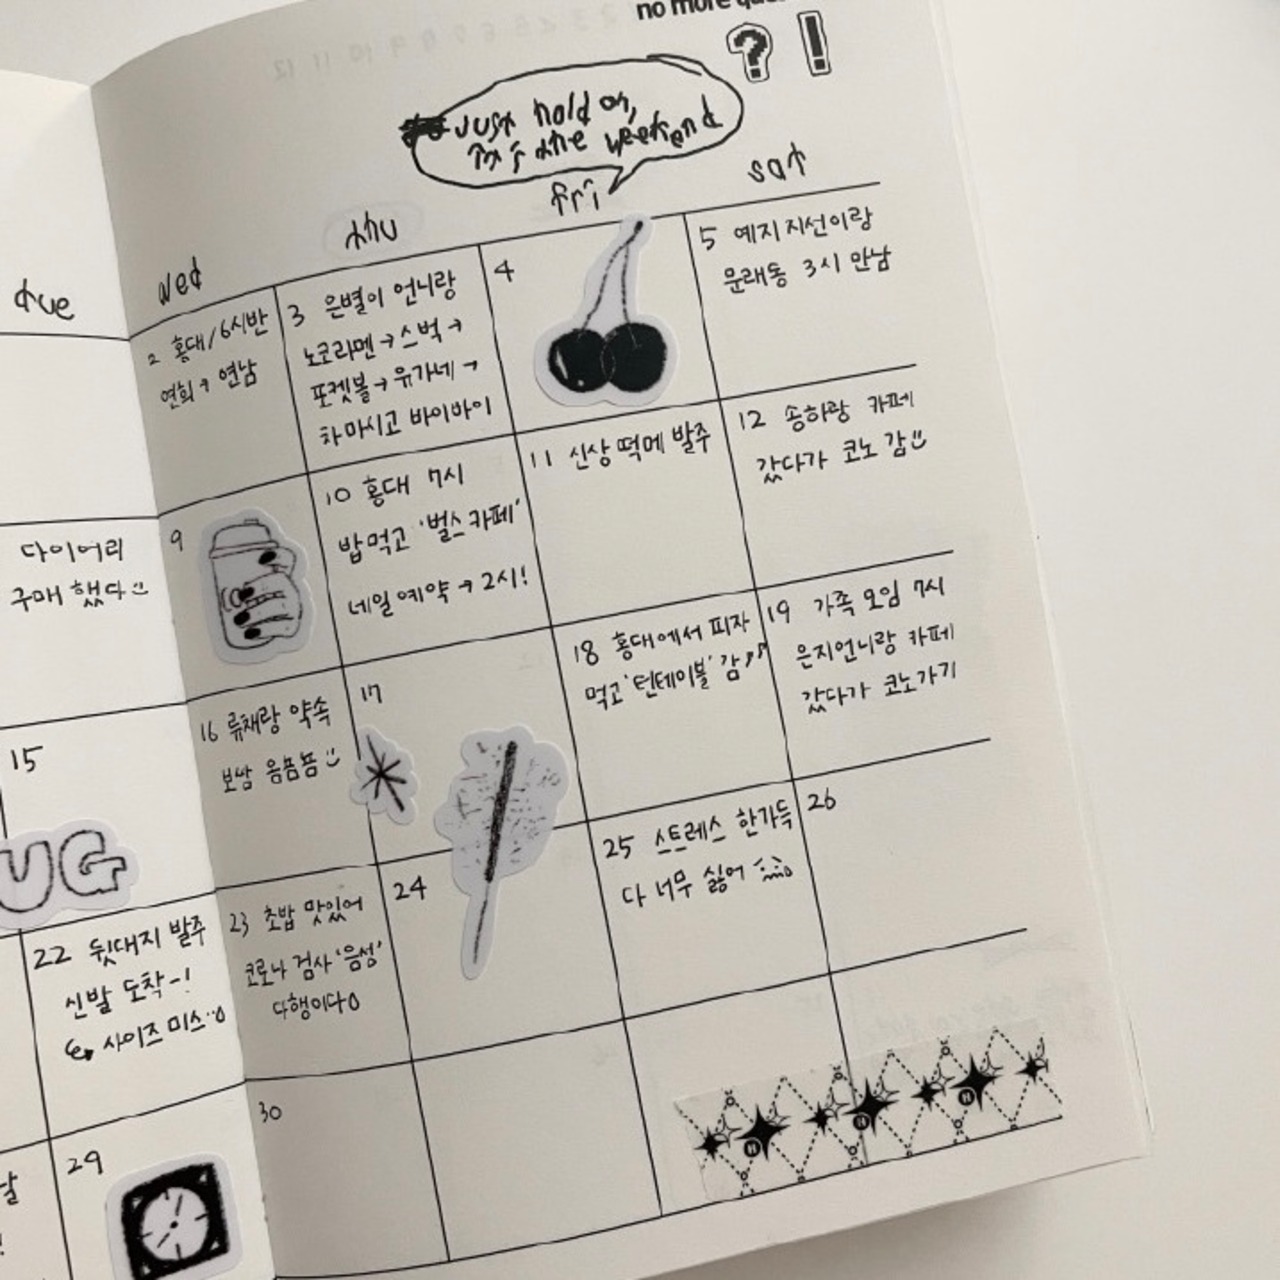 no more
? !
Just hold on,
it's the weekend
tue
wed
thu
fri
sat
2 홍대/6시반
연희→연남
3 은별이 언니랑
노코라멘→스벅→
포켓볼→유가네→
차마시고 바이바이
4
5 예지 지선이랑
문래동 3시 만남
다이어리
구매 했다
9
10 홍대 7시
밥먹고 '벌스카페'
네일예약→2시!
11 신상떡메 발주
12 송하랑 카페
갔다가 코노 감
15
UG
16 류채랑 약속
보쌈 음뇸뇸
17
18 홍대에서 피자
먹고 '턴테이블' 감♪♪
19 가족모임 7시
은지언니랑 카페
갔다가 코노가기
22 뒷대지 발주
신발 도착-!
사이즈미스
23 초밥 맛있어
코로나 검사 '음성'
다행이다
24
25 스트레스 한가득
다 너무 싫어
26
29
30